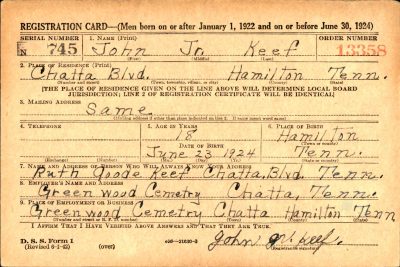 REGISTRATION CARD—(Men born on or after January 1, 1922 and on or before June 30, 1924)
SERIAL NUMBER 1. NAME (Print) ORDER NUMBER
N 745 John Jr. Keef 13358
(First) (Middle) (Last)
2. PLACE OF RESIDENCE (Print)
Chatta Blvd. Hamilton Tenn.
(Number and street) (Town, township, village, or city) (County) (State)
[THE PLACE OF RESIDENCE GIVEN ON THE LINE ABOVE WILL DETERMINE LOCAL BOARD
JURISDICTION; LINE 2 OF REGISTRATION CERTIFICATE WILL BE IDENTICAL]
3. MAILING ADDRESS
Same.
[Mailing address if other than place indicated on line 2. If same insert word same]
4. TELEPHONE 5. AGE IN YEARS 6. PLACE OF BIRTH
18 Hamilton
DATE OF BIRTH (Town or county)
June 23 1924 Tenn.
(Exchange) (Number) (Mo.) (Day) (Yr.) (State or country)
7. NAME AND ADDRESS OF PERSON WHO WILL ALWAYS KNOW YOUR ADDRESS
Ruth Goode Keef Chatta, Blvd. Tenn.
8. EMPLOYER'S NAME AND ADDRESS
Greenwood Cemetry Chatta, Tenn.
9. PLACE OF EMPLOYMENT OR BUSINESS
Greenwood Cemetry Chatta Hamilton Tenn
(Number and street or R. F. D. number) (Town) (County) (State)
I AFFIRM THAT I HAVE VERIFIED ABOVE ANSWERS AND THAT THEY ARE TRUE.
D. S. S. Form 1
(Revised 6-1-42) (over) John Jr. Keef.